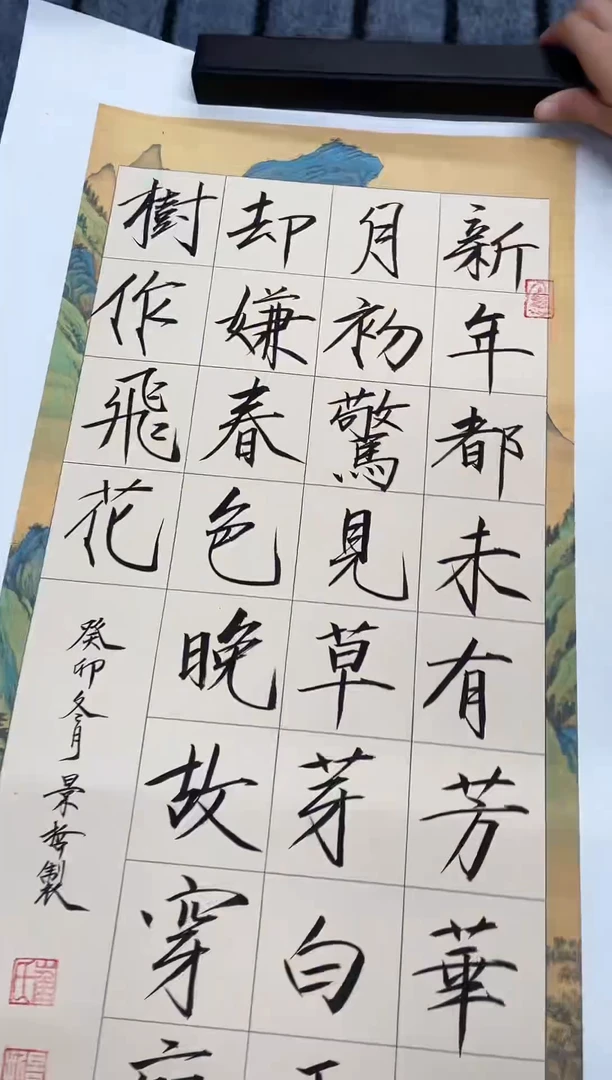 新年都未有芳華
月初驚見草芽白
却嫌春色晚故穿
樹作飛花
癸卯冬月景製